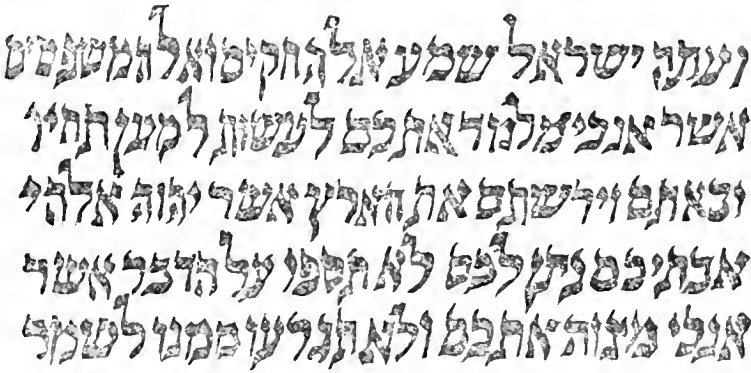 ועתה ישראל שמע אל החקים ואל המשפטים
אשר אנכי מלמד אתכם לעשות למען תחיו
ובאתם וירשתם את הארץ אשר יהוה אלהי
אבתיכם נתן לכם לא תספו על הדבר אשר
אנכי מצוה אתכם ולא תגרעו ממנו לשמר